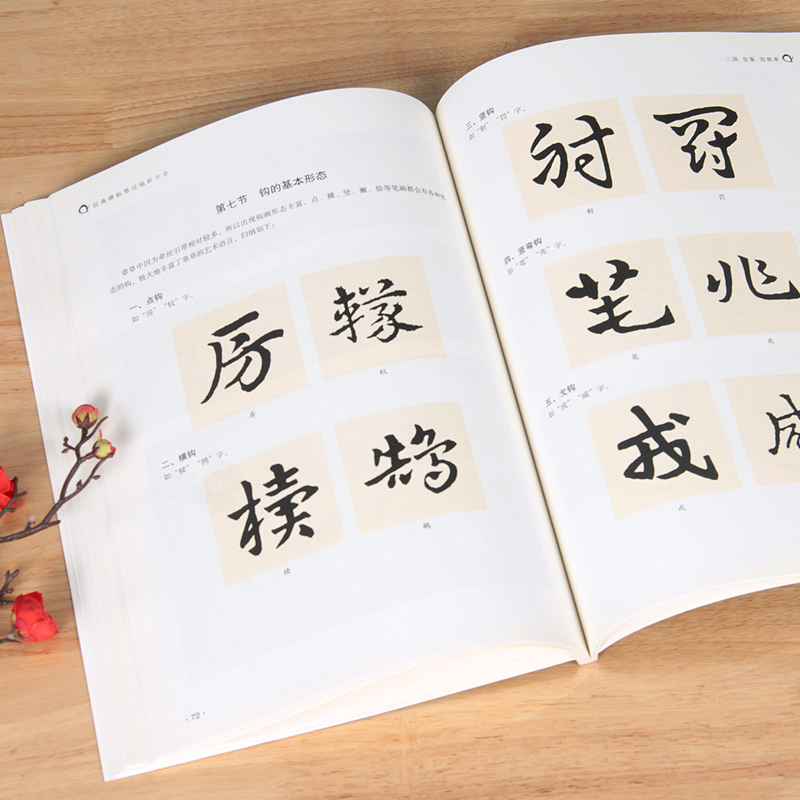 经典碑帖笔法临析大全
第七节 钩的基本形态
章草中因为牵丝引带相对较多，所以出现钩画形态丰富，点、横、竖、撇、捺等笔画都会有各种形
态的钩，极大地丰富了章草的艺术语言，归纳如下：
一、点钩
如“房”“杈”字。
房
杈
二、横钩
鹄
· 72 ·
三国 皇象 急就章
三、竖钩
如“射”“罚”字。
射
罚
四、竖弯钩
如“笔”“兆”字。
笔
兆
五、戈钩